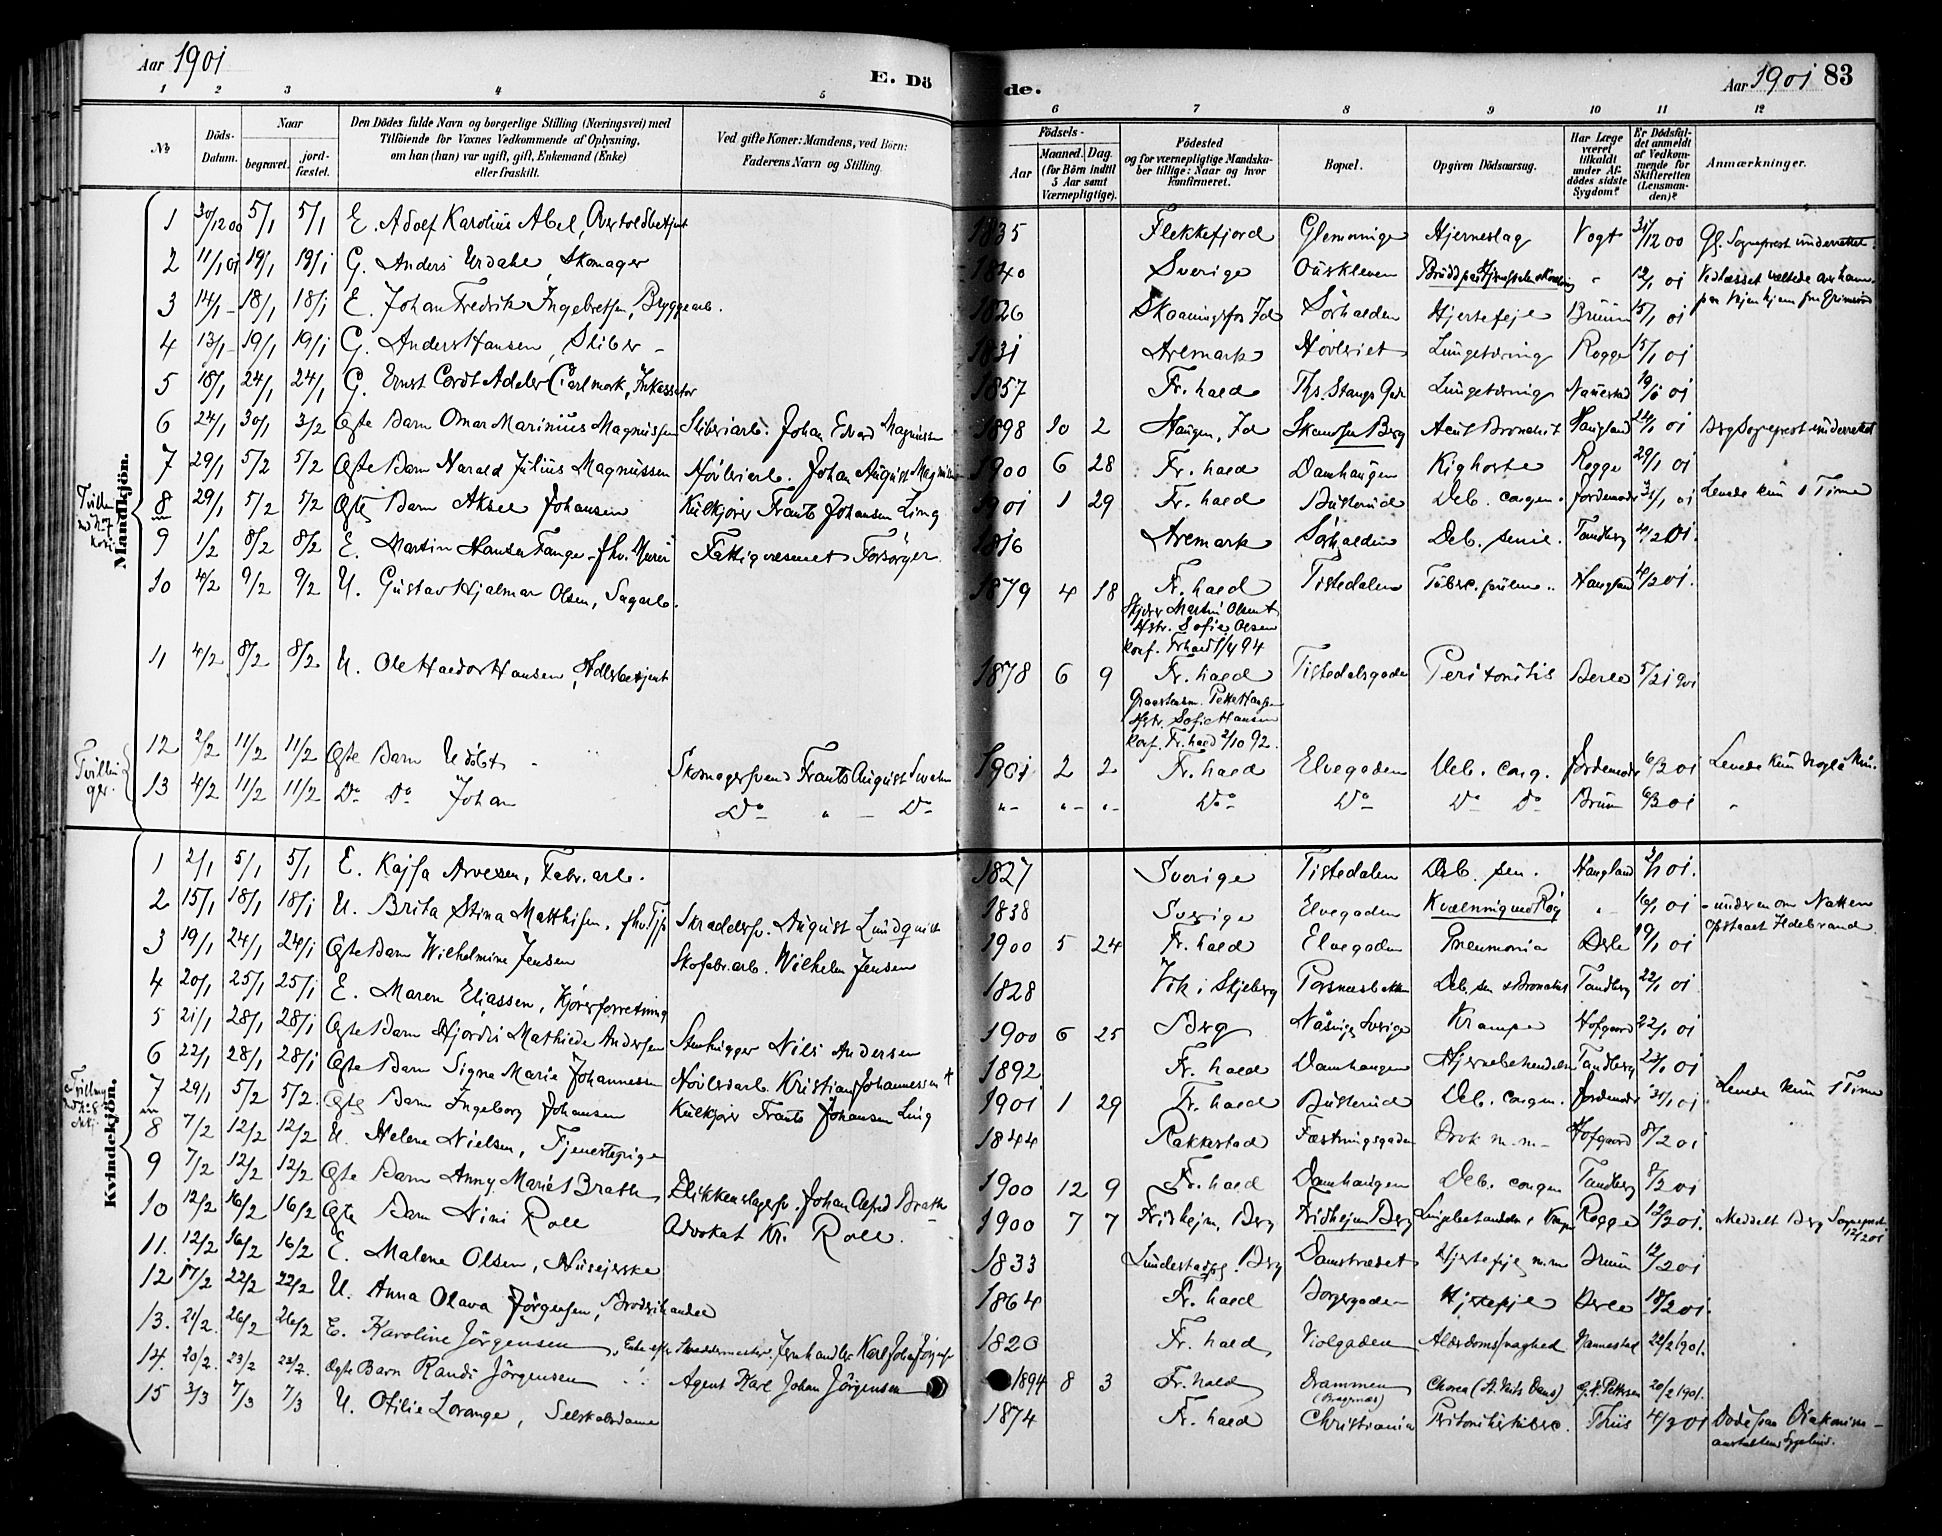 Aar 1901
E. Dö
de.
Aar 1901 83
1 2 3 4 5 6 7 8 9 10 11 12
No
Döds-Datum.
Naar
begravet.
jord-fæstet.
Den Dödes fulde Navn og borgerlige Stilling (Næringsvei) med
Tilföiende for Voxnes Vedkommende af Oplysning,
om han (hun) var ugift, gift, Enkemand (Enke)
eller fraskilt.
Ved gifte Koner: Mandens, ved Börn:
Faderens Navn og Stilling.
Födsels-
Aar
Maaned. Dag.
(for Börn indtil
5 Aar samt
Værnepligtige).
Födested
og for værnepligtige Mandska-
ber tillige: Naar og hvor
konfirmeret.
Bopæl.
Opgiven Dödsaarsag.
Har Læge
været
tilkaldt
under Af-
dödes sidste
Sygdom?
Er Dödsfal-
det anmeldt
af Vedkom-
mende for
Skifteretten
(Lensman-
den)?
Anmærkninger.
Mandkjön.
1 30/12 00 5/1 5/1 E. Adolf Karolius Abel, Overtoldbetjent 1835 Flekkefjord Glemminge Hjerneslag Vogt 31/12 00 Gl. Sogneprest underrettet.
2 11/1 01 19/1 19/1 G. Anders Urdahl, Skomager 1840 Sverige 12/1 01
3 14/1 18/1 18/1 E. Johan Fredrik Ingebretsen, Bryggearb. 1826 Skaaningsfos Id Sörhalden Hjertefejl Bruun 15/1 01
4 13/1 19/1 19/1 G. Anders Hansen, Sliber 1831 Aremark Høvleriet Lungetæring Rogge 15/1 01
5 18/1 24/1 24/1 G. Ernst Cordt Adeler Carlmark, Inkassator 1857 Fr.hald Ths. Stangs Gade Lungetæring Nannestad 19/1 01
6 24/1 30/1 3/2 Ægte Barn Omar Marinius Magnussen Sliberiarb. Johan Edvard Magnussen 1898 10 2 Haugen, Id Skansen Berg Acut Bronchit Haugland 24/1 01 Berg Sogneprest underrettet
7 29/1 5/2 5/2 Ægte Barn Harald Julius Magnussen Høvleriarb. Johan August Magnussen 1900 6 28 Fr.hald Damhaugen Kighoste Rogge 29/1 01
8 29/1 5/2 5/2 Ægte Barn Aksel Johansen Kulkjører Frants Johansen Ling 1901 1 29 Fr.hald Busterud Deb. congen. Jordemoder 31/1 01 Levede kun 1 Time
9 1/2 8/2 8/2 E. Martin Hansen Tange, fhv. Murer Fattigvæsenets Forsörger 1816 Aremark Sörhalden Deb. senil. Tandberg 4/2 01
10 4/2 9/2 9/2 U. Gustav Hjalmar Olsen, Sagarb. 1879 4 18 Fr.hald Tistedalen Tuberc. pulm. Haugland 4/2 01.
Martin Olsen
Hstr. Sofie Olsen
Konf. Fr.hald 1/4 94
11 4/2 8/2 8/2 U. Ole Haldor Hansen, Adlerbetjent 1878 6 9 Fr.hald Tistedalsgaden Peritonitis Berle 5/2 1901
Hstr. Sofie Hansen
Konf. Fr.hald 2/10 92.
Tvillinger.
12 2/2 11/2 11/2 Ægte Barn Udöbt Skomagersvend Frants August Svahn 1901 2 2 Fr.hald Elvegaden Deb. cong. Jordemoder 6/2 01 Levede kun nogle Min.
13 4/2 11/2 11/2 Do Do Johan Do " Do "- "- "- Do Do Do Do Bruun 6/2 01 "
Kvindekjön.
1 2/1 5/1 5/1 E. Kajsa Arvesen, Fabr.arb. 1827 Sverige Tistedalen Deb. sen. Haugland 3/1 01.
2 15/1 18/1 18/1 U. Brita Stina Matthisen, Skrædersv. August Lundquist 1838 Sverige Elvegaden Kvælning ved Røg " 16/1 01 under en om Natten
opstaaet Ildebrand.
3 19/1 24/1 24/1 Ægte Barn Wilhelmine Jensen Skofabr.arb. Wilhelm Jensen 1900 5 24 Fr.hald Elvegaden Pneumonia Berle 19/1 01
4 20/1 25/1 25/1 E. Maren Eliassen, Kjörerforretning 1828 Vik i Skjeberg Porsnæsbakken Deb. sen & Bronchit Tandberg 22/1 01
5 21/1 28/1 28/1 Ægte Barn Hjördis Mathilde Andersen Stenhugger Nils Andersen 1900 6 25 Berg Näsinge Sverige Krampe Hofgaard 22/1 01
6 22/1 28/1 28/1 Ægte Barn Signe Marie Johannessen Høvleriarb. Kristian Johannessen 1892 Fr.hald Damhaugen Hjernebetændelse Tandberg 23/1 01
7 29/1 5/2 5/2 Ægte Barn Ingeborg Johansen Kulkjører Frants Johansen Ling 1901 1 29 Fr.hald Busterud Deb. congen. Jordemoder 31/1 01 Levede kun 1 Time
8 7/2 12/2 12/2 U. Helene Nielsen, Tjenestepige 1844 Rakkestad Fæstningsgaden Brok m.m. Hofgaard 8/2 01
9 7/2 12/2 12/2 Ægte Barn Anny Marie Brath Blikkenslagersv. Johan Alfred Brath 1900 12 9 Fr.hald Damhaugen Deb. congen Tandberg 8/2 01
10 12/2 16/2 16/2 Ægte Barn Nini Roll Advokat Kr. Roll. 1900 7 7 Fridheim, Berg Fridheim Berg Lungebetændelse, Krampe Rogge 12/2 01. Meddelt Berg Sogneprest
12/2 01
11. 12/2 16/2 16/2 E. Malene Olsen, Husejerske 1833 Lundestad Berg Damstrædet Hjertefejl m.m Bruun 12/2 01
12 17/2 22/2 22/2 U. Anna Olava Jörgensen, Broderihandel 1864 Fr.hald Borgergaden Hjertefejl Berle 18/2 01.
13. 21/2. 26/2 26/2 E. Karoline Jörgensen, Enke efter Jernhandler Karl Johan Jörgensen 1820 Fr.hald Violgaden Alderdomssvaghed Nannestad 22/2 1901.
14. 20/2. 23/2 23/2. Ægte Barn Randi Jörgensen Agent Karl Johan Jörgensen 1894 8 3 Fr.hald Drammen (Bragernæs) Chorea (St. Veits Dans) G. F. Pettersen 20/2 1901.
15 3/3 7/3 7/3 U. Otilie Lorange, Selskabsdame 1874 Fr.hald Christiania Peritonitis tuberc. Thiis 4/3 01 Døde paa Diakonisse-
anstaltens Sygehus.